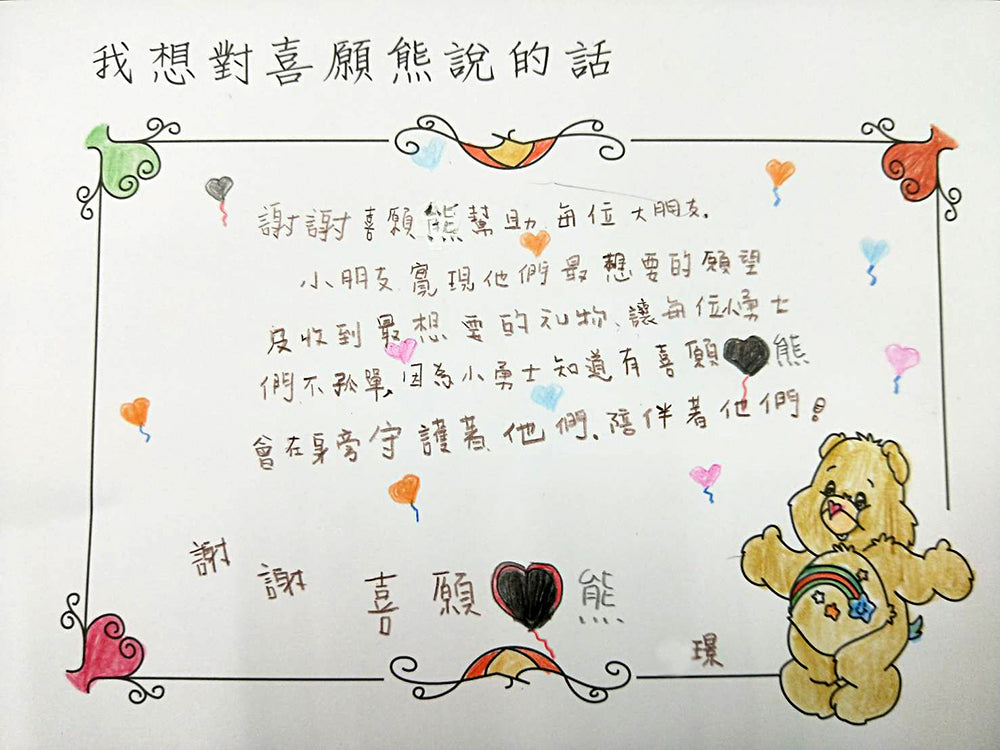 我想對喜願熊說的話
謝謝喜願熊幫助每位大朋友.
小朋友實現他們最想要的願望
及收到最想要的礼物、讓每位小勇士
們不孤單,因為小勇士知道有喜願熊
會在身旁守護著他們、陪伴著他們!
謝謝喜願熊
璟